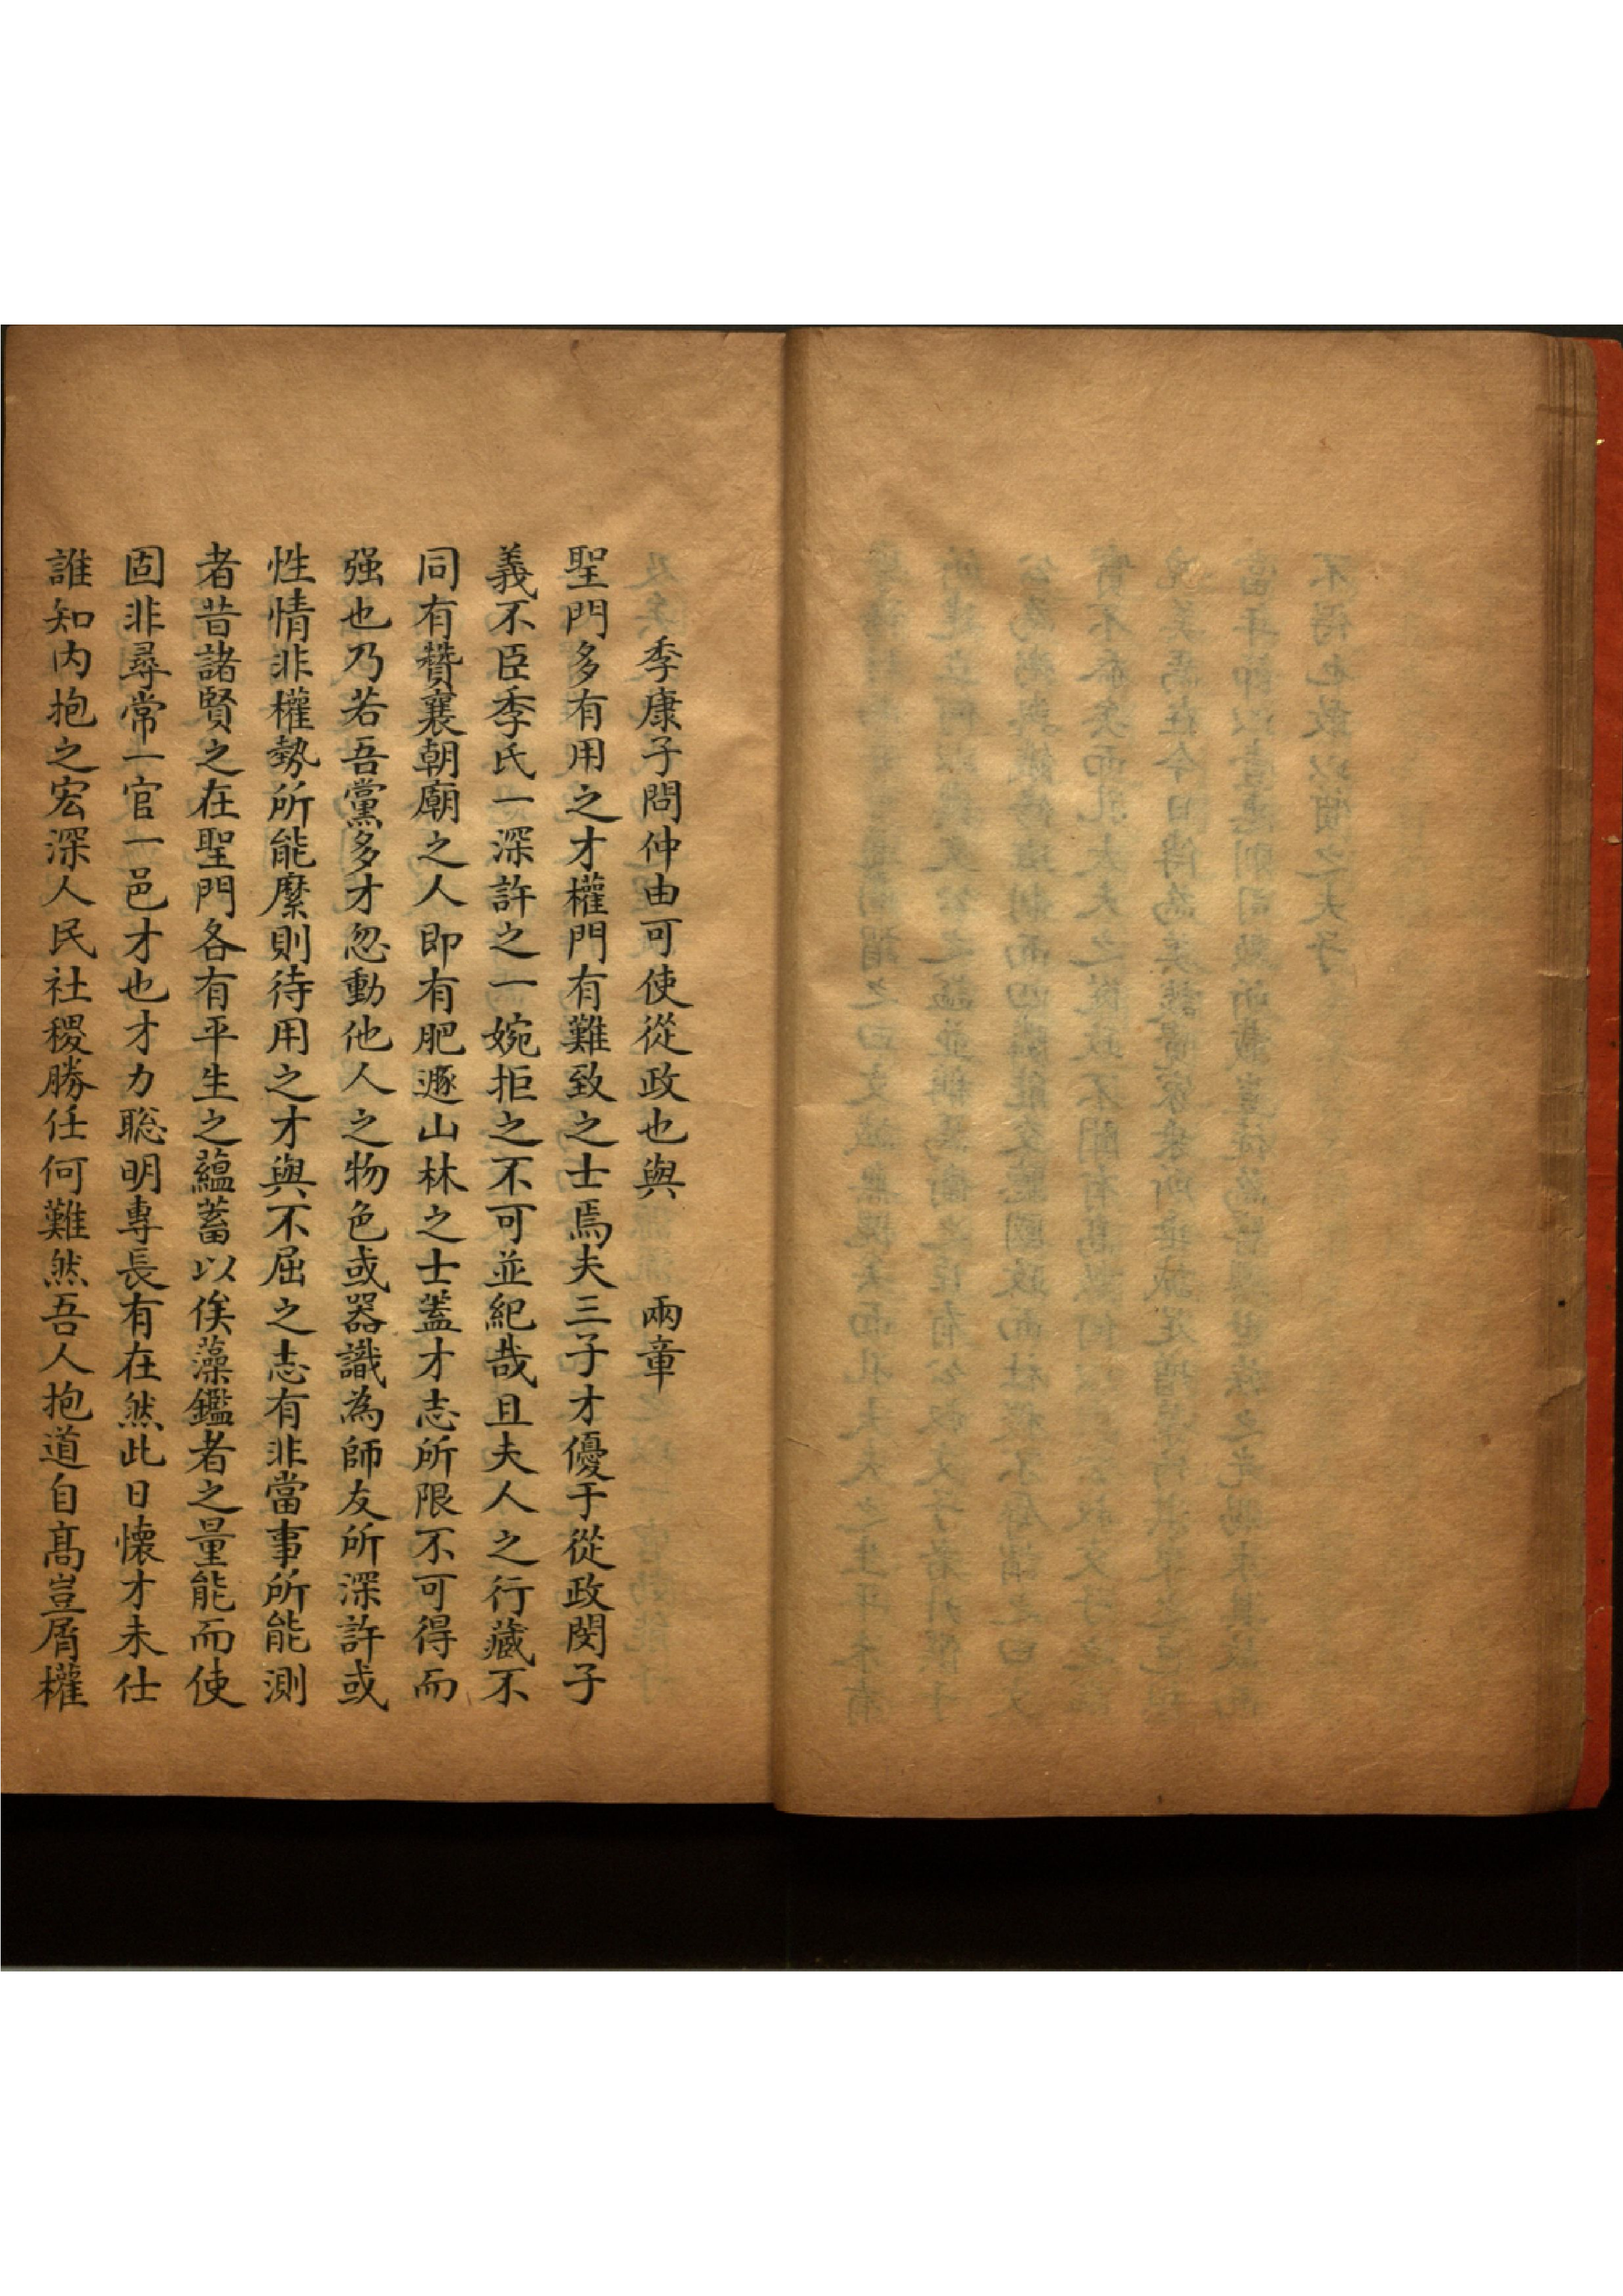 季康子問仲由可使從政也與　兩章
聖門多有用之才權門有難致之士焉夫三子才優于從政閔子
義不臣季氏一深許之一婉拒之不可並紀哉且夫人之行藏不
同有贊襄朝廟之人即有肥遯山林之士蓋才志所限不可得而
强也乃若吾黨多才忽動他人之物色或器識為師友所深許或
性情非權勢所能縻則待用之才與不屈之志有非當事所能測
者昔諸賢之在聖門各有平生之蘊蓄以俟藻鑑者之量能而使
固非尋常一官一邑才也才力聡明專長有在然此日懷才未仕
誰知内抱之宏深人民社稷勝任何難然吾人抱道自高豈屑權